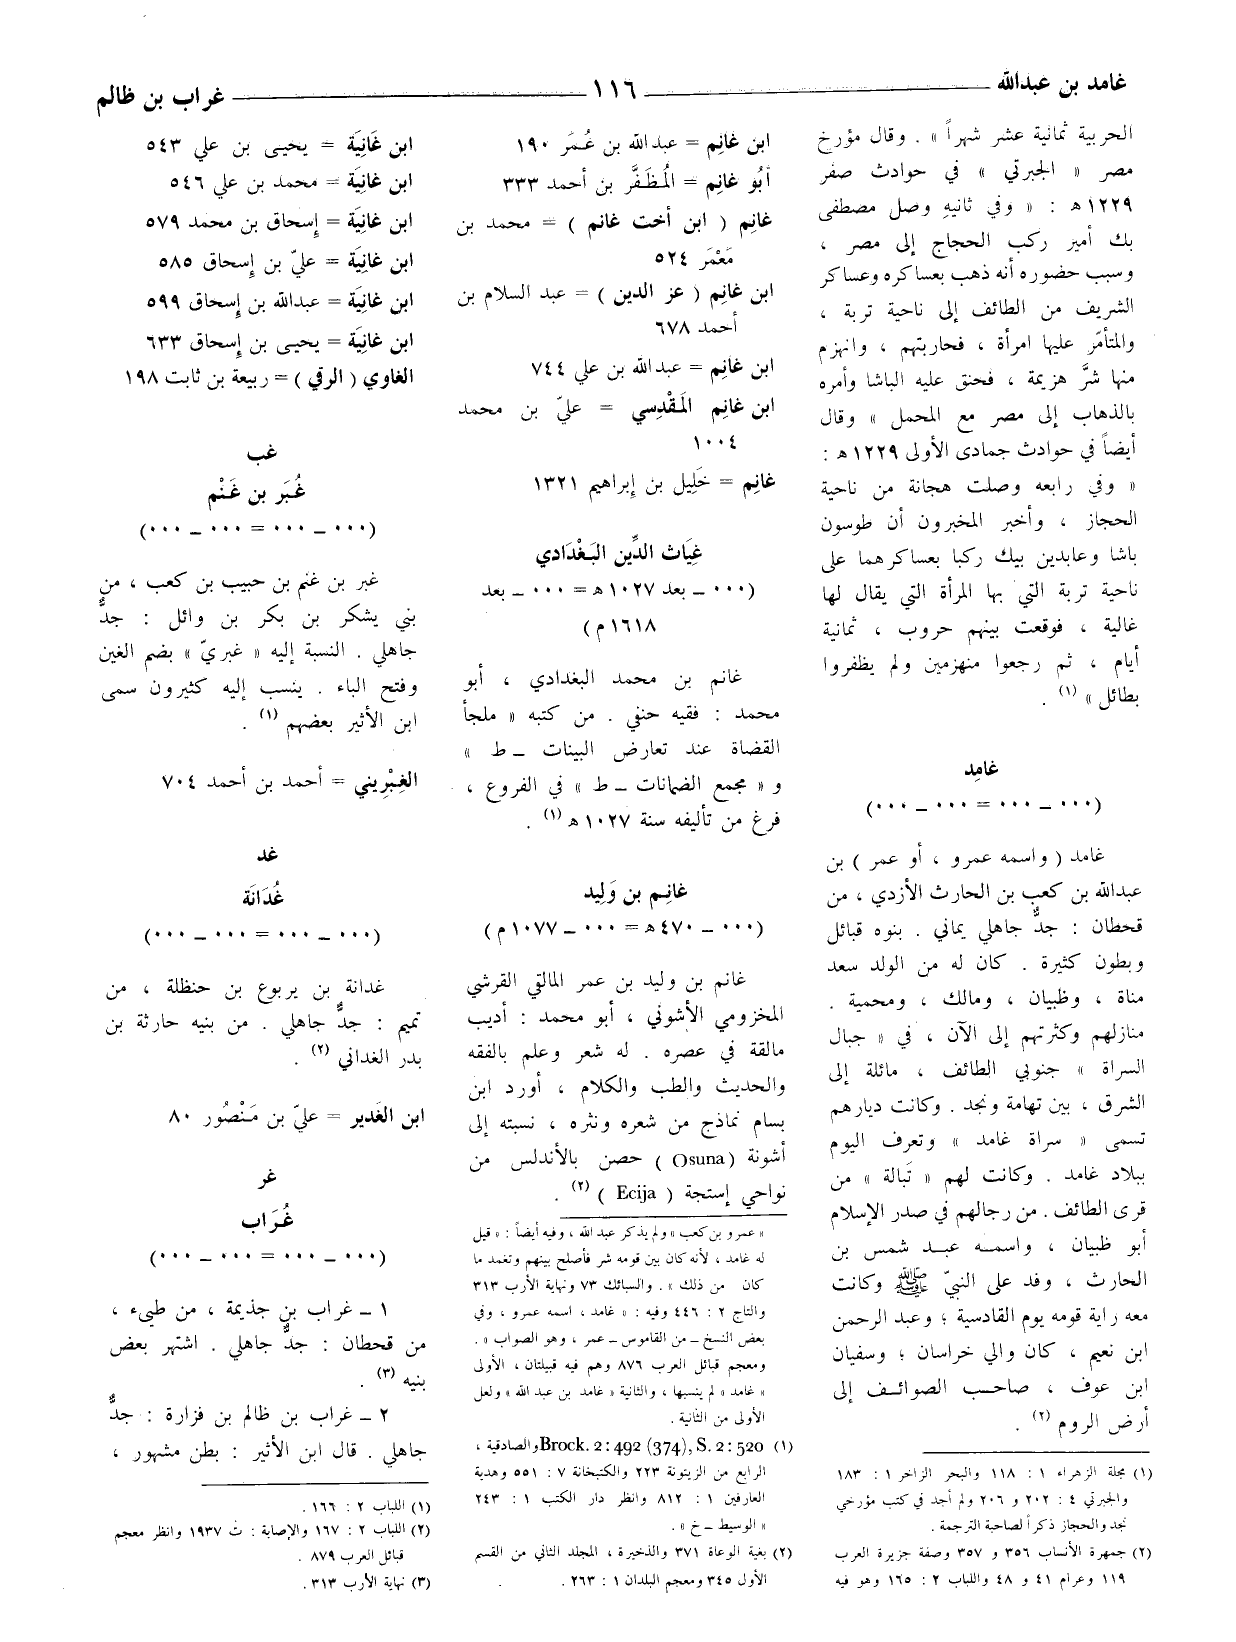 غامد بن عبدالله
١١٦
غراب بن ظالم
الحربية ثمانية عشر شهراً » . وقال مؤرخ
مصر « الجبرتي » في حوادث صفر
١٢٢٩ ه‍ : « وفي ثانيهِ وصل مصطفى
بك أمير ركب الحجاج إلى مصر ،
وسبب حضوره أنه ذهب بعساكره وعساكر
الشريف من الطائف إلى ناحية تربة ،
والمتأمّر عليها امرأة ، فحاربتهم ، وانهزم
منها شرَّ هزيمة ، فحنق عليه الباشا وأمره
بالذهاب إلى مصر مع المحمل » وقال
أيضاً في حوادث جمادى الأولى ١٢٢٩ ه‍ :
« وفي رابعه وصلت هجانة من ناحية
الحجاز ، وأخبر المخبرون أن طوسون
باشا وعابدين بيك ركبا بعساكرهما على
ناحية تربة التي بها المرأة التي يقال لها
غالية ، فوقعت بينهم حروب ، ثمانية
أيام ، ثم رجعوا منهزمين ولم يظفروا
بطائل » (١) .
غامد
(٠٠٠ ــ ٠٠٠ = ٠٠٠ ــ ٠٠٠)
غامد ( واسمه عمرو ، أو عمر ) بن
عبدالله بن كعب بن الحارث الأزدي ، من
قحطان : جدٌّ جاهلي يماني . بنوه قبائل
وبطون كثيرة . كان له من الولد سعد
مناة ، وظبيان ، ومالك ، ومحمية .
منازلهم وكثرتهم إلى الآن ، في « جبال
السراة » جنوبي الطائف ، مائلة إلى
الشرق ، بين تهامة ونجد . وكانت ديارهم
تسمى « سراة غامد » وتعرف اليوم
ببلاد غامد . وكانت لهم « تَبالة » من
قرى الطائف . من رجالهم في صدر الإسلام
أبو ظبيان ، واسمه عبد شمس بن
الحارث ، وفد على النبيّ ﷺ وكانت
معه راية قومه يوم القادسية ؛ وعبد الرحمن
ابن نعيم ، كان والي خراسان ؛ وسفيان
ابن عوف ، صاحب الصوائف إلى
أرض الروم (٢) .
(١) مجلة الزهراء ١ : ١١٨ والبحر الزاخر ١ : ١٨٣
والجبرتي ٤ : ٢٠٢ و ٢٠٦ ولم أجد في كتب مؤرخي
نجد والحجاز ذكراً لصاحبة الترجمة .
(٢) جمهرة الأنساب ٣٥٦ و ٣٥٧ وصفة جزيرة العرب
١١٩ وعرام ٤١ و ٤٨ واللباب ٢ : ١٦٥ وهو فيه
ابن غانِم = عبدالله بن عُمَر ١٩٠
أَبُو غانِم = المُظَفَّر بن أحمد ٣٣٣
غانِم ( ابن أخت غانم ) = محمد بن
مَعْمَر ٥٢٤
ابن غانِم ( عز الدين ) = عبد السلام بن
أحمد ٦٧٨
ابن غانِم = عبدالله بن علي ٧٤٤
ابن غانِم المَقْدِسي = عليّ بن محمد
١٠٠٤
غانِم = خَلِيل بن إبراهيم ١٣٢١
غِيَاث الدِّين البَغْدَادي
(٠٠٠ ــ بعد ١٠٢٧ ه‍ = ٠٠٠ ــ بعد
١٦١٨ م)
غانم بن محمد البغدادي ، أبو
محمد : فقيه حنفي . من كتبه « ملجأ
القضاة عند تعارض البينات ــ ط »
و « مجمع الضمانات ــ ط » في الفروع ،
فرغ من تأليفه سنة ١٠٢٧ ه‍ (١) .
غانِم بن وَلِيد
(٠٠٠ ــ ٤٧٠ ه‍ = ٠٠٠ ــ ١٠٧٧ م)
غانم بن وليد بن عمر المالقي القرشي
المخزومي الأشوني ، أبو محمد : أديب
مالقة في عصره . له شعر وعلم بالفقه
والحديث والطب والكلام ، أورد ابن
بسام نماذج من شعره ونثره ، نسبته إلى
أشونة (Osuna) حصن بالأندلس من
نواحي إستجة (Ecija) (٢) .
« عمرو بن كعب » ولم يذكر عبدالله ، وفيه أيضاً : « قيل
له غامد ، لأنه كان بين قومه شر فأصلح بينهم وتغمد ما
كان من ذلك » . والسبائك ٧٣ ونهاية الأرب ٣١٣
والتاج ٢ : ٤٤٦ وفيه : « غامد ، اسمه عمرو ، وفي
بعض النسخ ــ من القاموس ــ عمر ، وهو الصواب » .
ومعجم قبائل العرب ٨٧٦ وهم فيه قبيلتان ، الأولى
« غامد » لم ينسبها ، والثانية « غامد بن عبدالله » ولعل
الأولى من الثانية .
(١) Brock. 2: 492 (374), S. 2: 520 والصادقية ،
الرابع من الزيتونة ٢٢٣ والكتبخانة ٧ : ٥٥١ وهدية
العارفين ١ : ٨١٢ وانظر دار الكتب ١ : ٢٤٣
« الوسيط ــ خ » .
(٢) بغية الوعاة ٣٧١ والذخيرة ، المجلد الثاني من القسم
الأول ٣٤٥ ومعجم البلدان ١ : ٢٦٣ .
ابن غَانِيَة = يحيى بن علي ٥٤٣
ابن غانِيَة = محمد بن علي ٥٤٦
ابن غانِيَة = إسحاق بن محمد ٥٧٩
ابن غانِيَة = عليّ بن إسحاق ٥٨٥
ابن غانِيَة = عبدالله بن إسحاق ٥٩٩
ابن غانِيَة = يحيى بن إسحاق ٦٣٣
الغاوي ( الرقي ) = ربيعة بن ثابت ١٩٨
غب
غُبَر بن غَنْم
(٠٠٠ ــ ٠٠٠ = ٠٠٠ ــ ٠٠٠)
غبر بن غنم بن حبيب بن كعب ، من
بني يشكر بن بكر بن وائل : جدٌّ
جاهلي . النسبة إليه « غبريّ » بضم الغين
وفتح الباء . ينسب إليه كثيرون سمى
ابن الأثير بعضهم (١) .
الغِبْرِيني = أحمد بن أحمد ٧٠٤
غد
غُدَانَة
(٠٠٠ ــ ٠٠٠ = ٠٠٠ ــ ٠٠٠)
غدانة بن يربوع بن حنظلة ، من
تميم : جدٌّ جاهلي . من بنيه حارثة بن
بدر الغداني (٢) .
ابن الغَدير = عليّ بن مَنْصُور ٨٠
غر
غُرَاب
(٠٠٠ ــ ٠٠٠ = ٠٠٠ ــ ٠٠٠)
١ ــ غراب بن جذيمة ، من طيىء ،
من قحطان : جدٌّ جاهلي . اشتهر بعض
بنيه (٣) .
٢ ــ غراب بن ظالم بن فزارة : جدٌّ
جاهلي . قال ابن الأثير : بطن مشهور ،
(١) اللباب ٢ : ١٦٦ .
(٢) اللباب ٢ : ١٦٧ والإصابة : ت ١٩٣٧ وانظر معجم
قبائل العرب ٨٧٩ .
(٣) نهاية الأرب ٣١٣ .